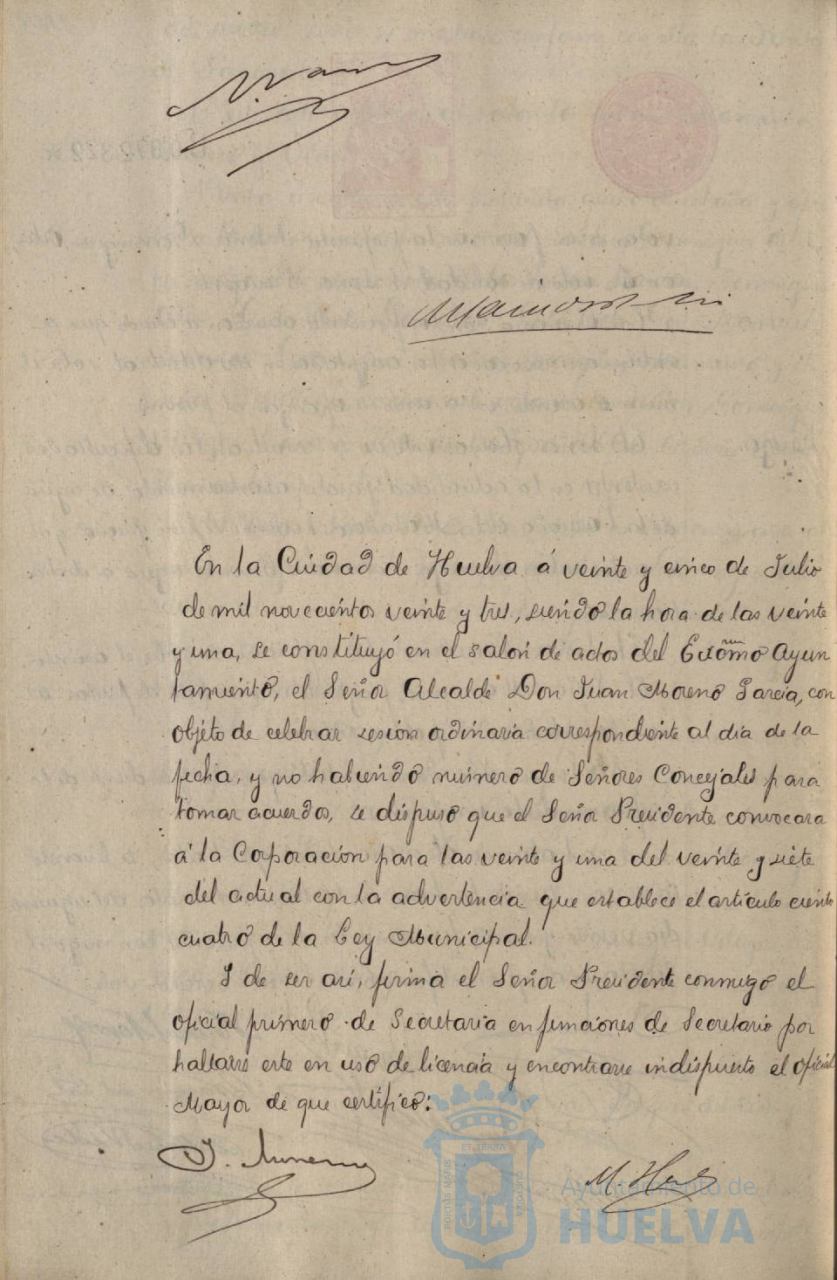 En la Ciudad de Huelva á veinte y cinco de Julio
de mil novecientos veinte y tres, siendo la hora de las veinte
y una, se constituyó en el salón de actos del Excmo Ayun
tamiento, el Señor Alcalde Don Juan Moreno García, con
objeto de celebrar sesión ordinaria correspondiente al día de la
fecha, y no habiendo número de Señores Concejales para
tomar acuerdos, se dispuso que el Señor Presidente convocara
á la Corporación para las veinte y una del veinte y siete
del actual con la advertencia que establece el artículo ciento
cuatro de la Ley Municipal.
Y de ser así, firma el Señor Presidente conmigo el
oficial primero de Secretaria en funciones de Secretario por
hallarse este en uso de licencia y encontrarse indispuesto el oficial
Mayor de que certifico:
J. Moreno
Ayuntamiento de
HUELVA